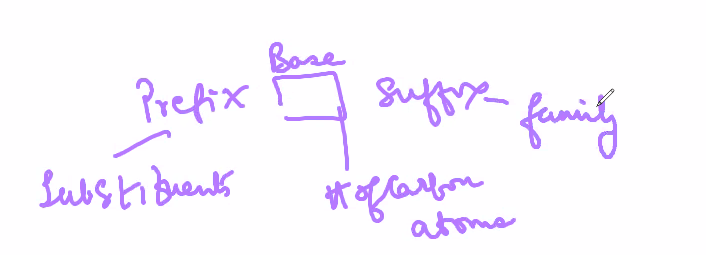 Base
Prefix Suffix - family
Substituents
# of Carbon
atoms